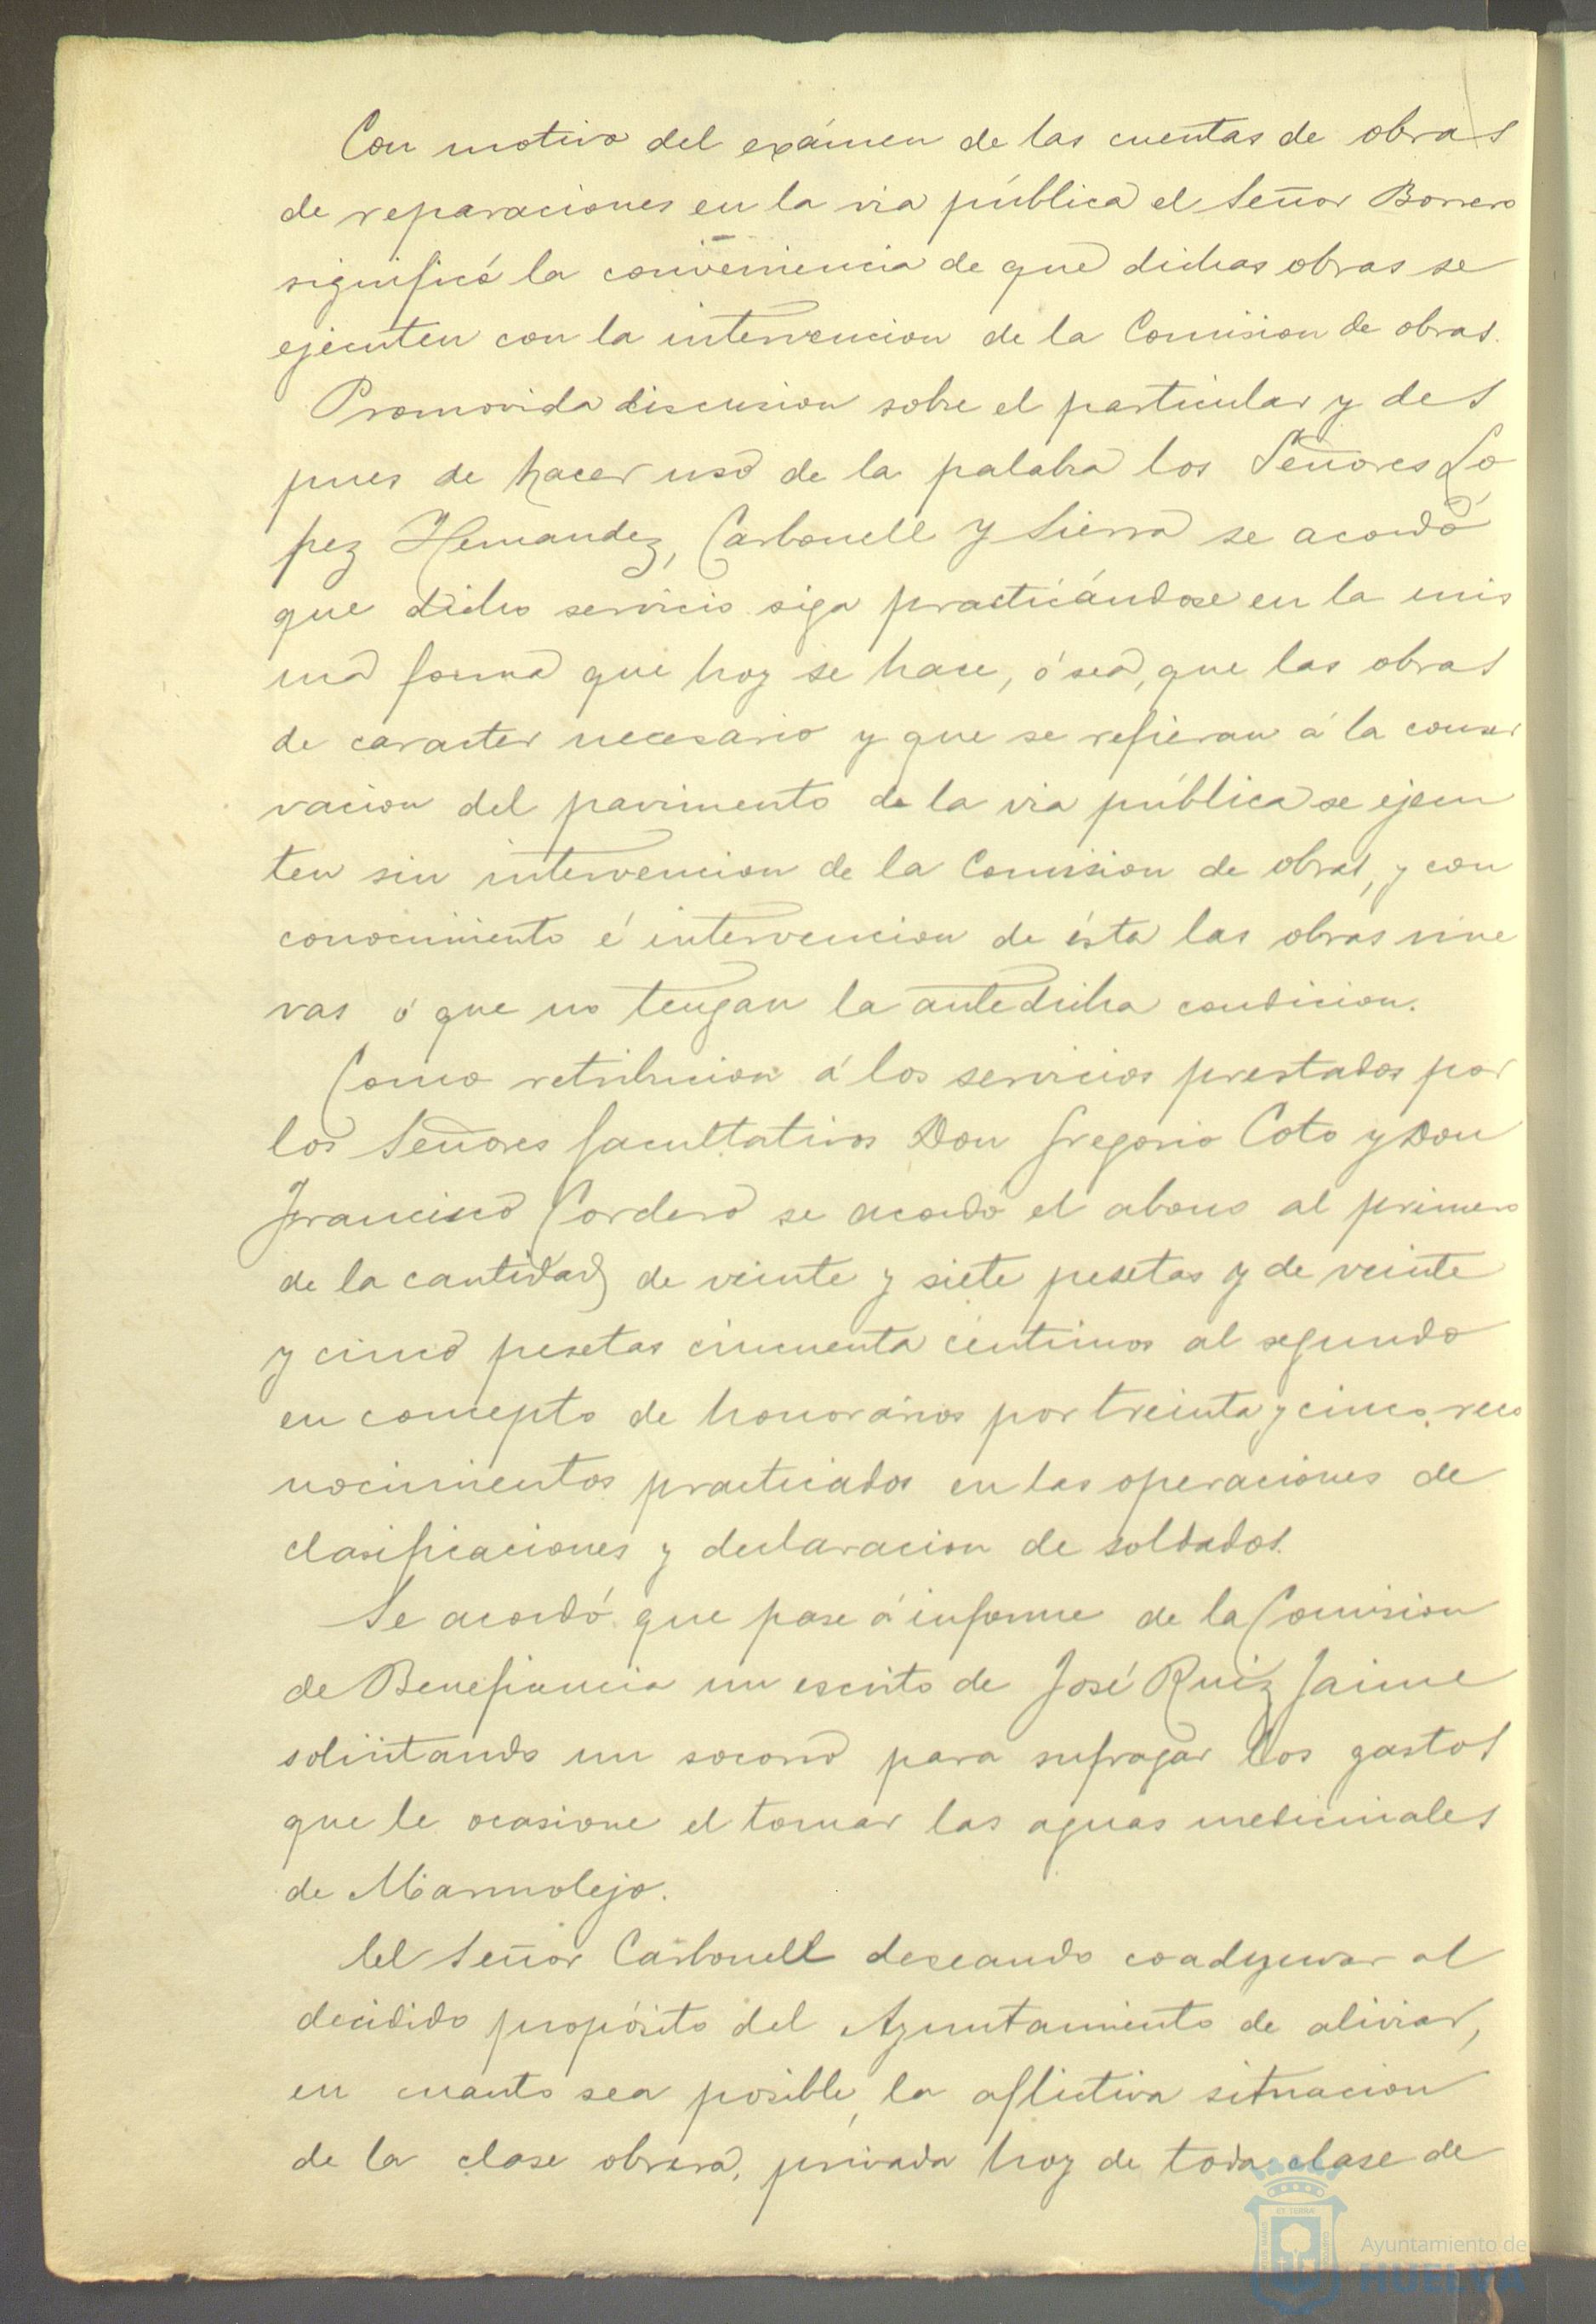 Con motivo del exámen de las cuentas de obras
de reparaciones en la via pública el Señor Borrero
significó la conveniencia de que dichas obras se
ejecuten con la intervencion de la Comision de obras.
Promovida discusion sobre el particular y des
pues de hacer uso de la palabra los Señores Lo
pez Hernandez, Carbonell y Sierra se acordó
que dicho servicio siga practicándose en la mis
ma forma que hoy se hace, ó sea, que las obras
de caracter necesario y que se refieran á la conser
vacion del pavimento de la via pública se ejecu
ten sin intervencion de la Comision de obras, y con
conocimiento é intervencion de ésta las obras nue
vas ó que no tengan la antedicha condicion.
Como retribucion á los servicios prestados por
los Señores facultativos Don Gregorio Coto y Don
Francisco Cordero se acordó el abono al primero
de la cantidad de veinte y siete pesetas y de veinte
y cinco pesetas cincuenta céntimos al segundo
en concepto de honorarios por treinta y cinco reco
nocimientos practicados en las operaciones de
clasificaciones y declaracion de soldados.
Se acordó que pase á informe de la Comision
de Beneficencia un escrito de José Ruiz Jaime
solicitando un socorro para sufragar los gastos
que le ocasione el tomar las aguas medicinales
de Marmolejo.
El Señor Carbonell deseando coadyuvar al
decidido propósito del Ayuntamiento de aliviar,
en cuanto sea posible, la aflictiva situacion
de la clase obrera, privada hoy de toda clase de
Ayuntamiento de
HUELVA